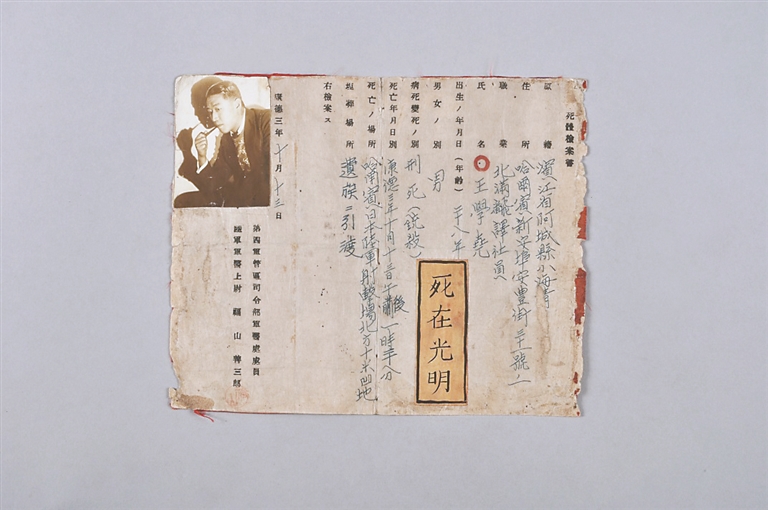 死體檢案書
原籍 濱江省阿城縣小海青
住所 哈爾濱新安埠安豐街三十一號ノ一
職業 北滿飜譯社員
氏名 王學堯
出生ノ年月日(年齡) 二十八年
男女ノ別 男
病死變死ノ別 刑死(銃殺)
死亡年月日別 康德三年十月十三日午後一時半分
死亡ノ場所 哈爾濱日本陸軍射擊場北方十米凹地
埋葬場所 遺族ニ引渡
右檢案ス
康德三年十月十三日
第四軍管區司令部軍醫處處員
陸軍軍醫上尉 福山 三郎
死在光明